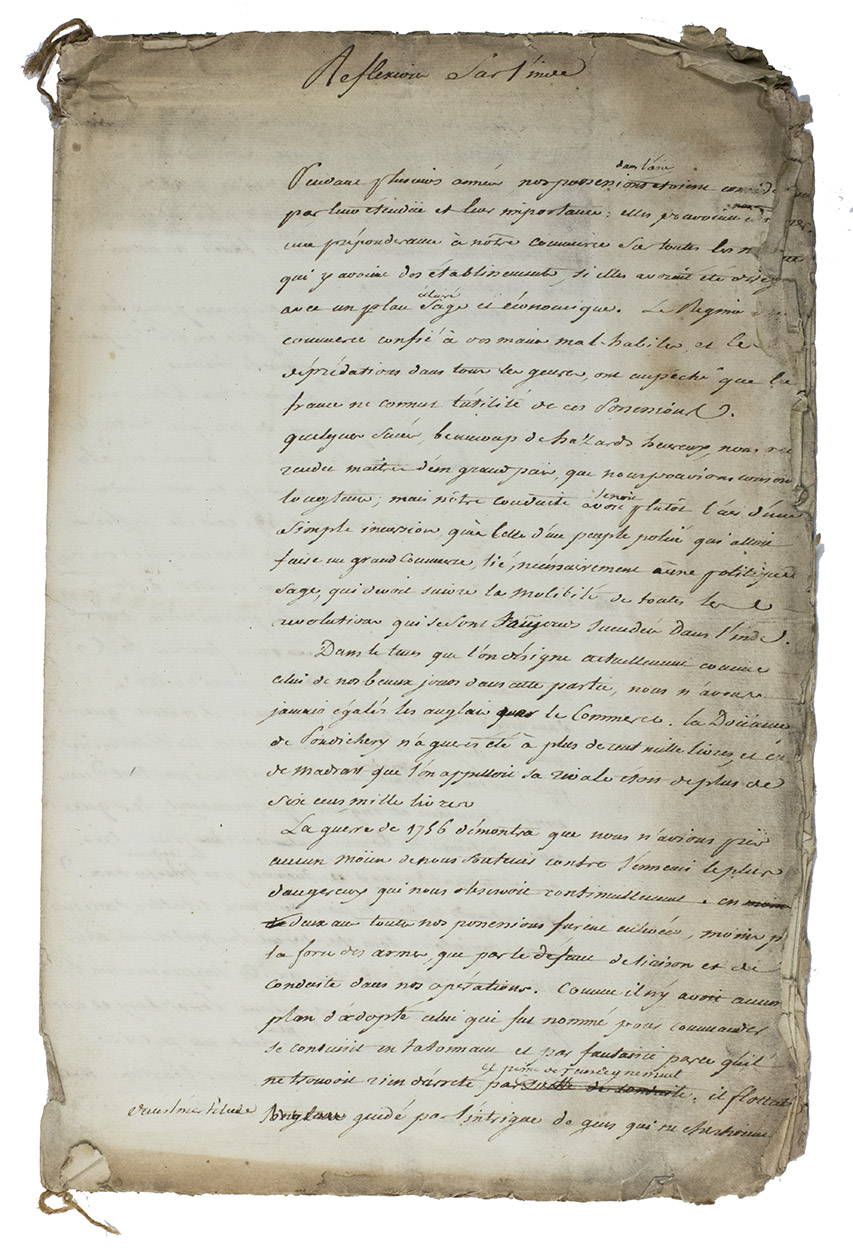 Reflexion Sur l'inde
dans l'asie
Pendant plusieurs années nos possessions etoient
par leur etendüe et leur importance; elles pouvoient
une préponderance à notre commerce sur toutes les
qui y avoient des établissements, si elles avoient été
éclairé
avec un plan sage et économique. Le Regime
commerce confié à des mains mal-habiles, et les
déprédations dans tous les genres, ont empeché que la
france ne connut l'utilité de ces Possessions.
quelques succés, beaucoup de hazards heureux, nous
rendu maitres d'un grand païs, que nous pouvions
longtems; mais nôtre conduite avoit plutôt l'air d'une
tenoit
simple incursion, qu'à celle d'un peuple policé qui alloit
faire un grand Commerce, lié, nécessairement a une politique
sage, qui devoit suivre la mobilité de toutes les
revolutions qui se sont toujours succedées dans l'inde.
Dans le tems que l'on désigne actuellement comme
celui de nos beaux jours dans cette partie, nous n'avons
jamais égalés les anglais pour le Commerce. la Doüanne
de Pondichery n'a gueres été à plus de cent mille livres, et
de madrast que l'on appelloit sa rivale etoit de plus de
six cens mille livres
La guerre de 1756 démontra que nous n'avions pris
aucun moïen de nous soutenir contre l'ennemi le plus
dangereux qui nous observoit continuellement. en
deux ans toutes nos possessions furent enlevées, moins p
la force des armes, que par le defaut de liaison et de
conduite dans nos opérations. Comme il n'y avoit aucun
plan d'adopté celui qui fut nommé pour commander
se conduisit en tatonnant et par fantaisie parce qu'il
et point de renseignement
ne trouvoit rien d'arreté par suitte de conduite; il flottoit
dans l'incertitude longtems guidé par l'intrigue de gens qui ne cherchoient